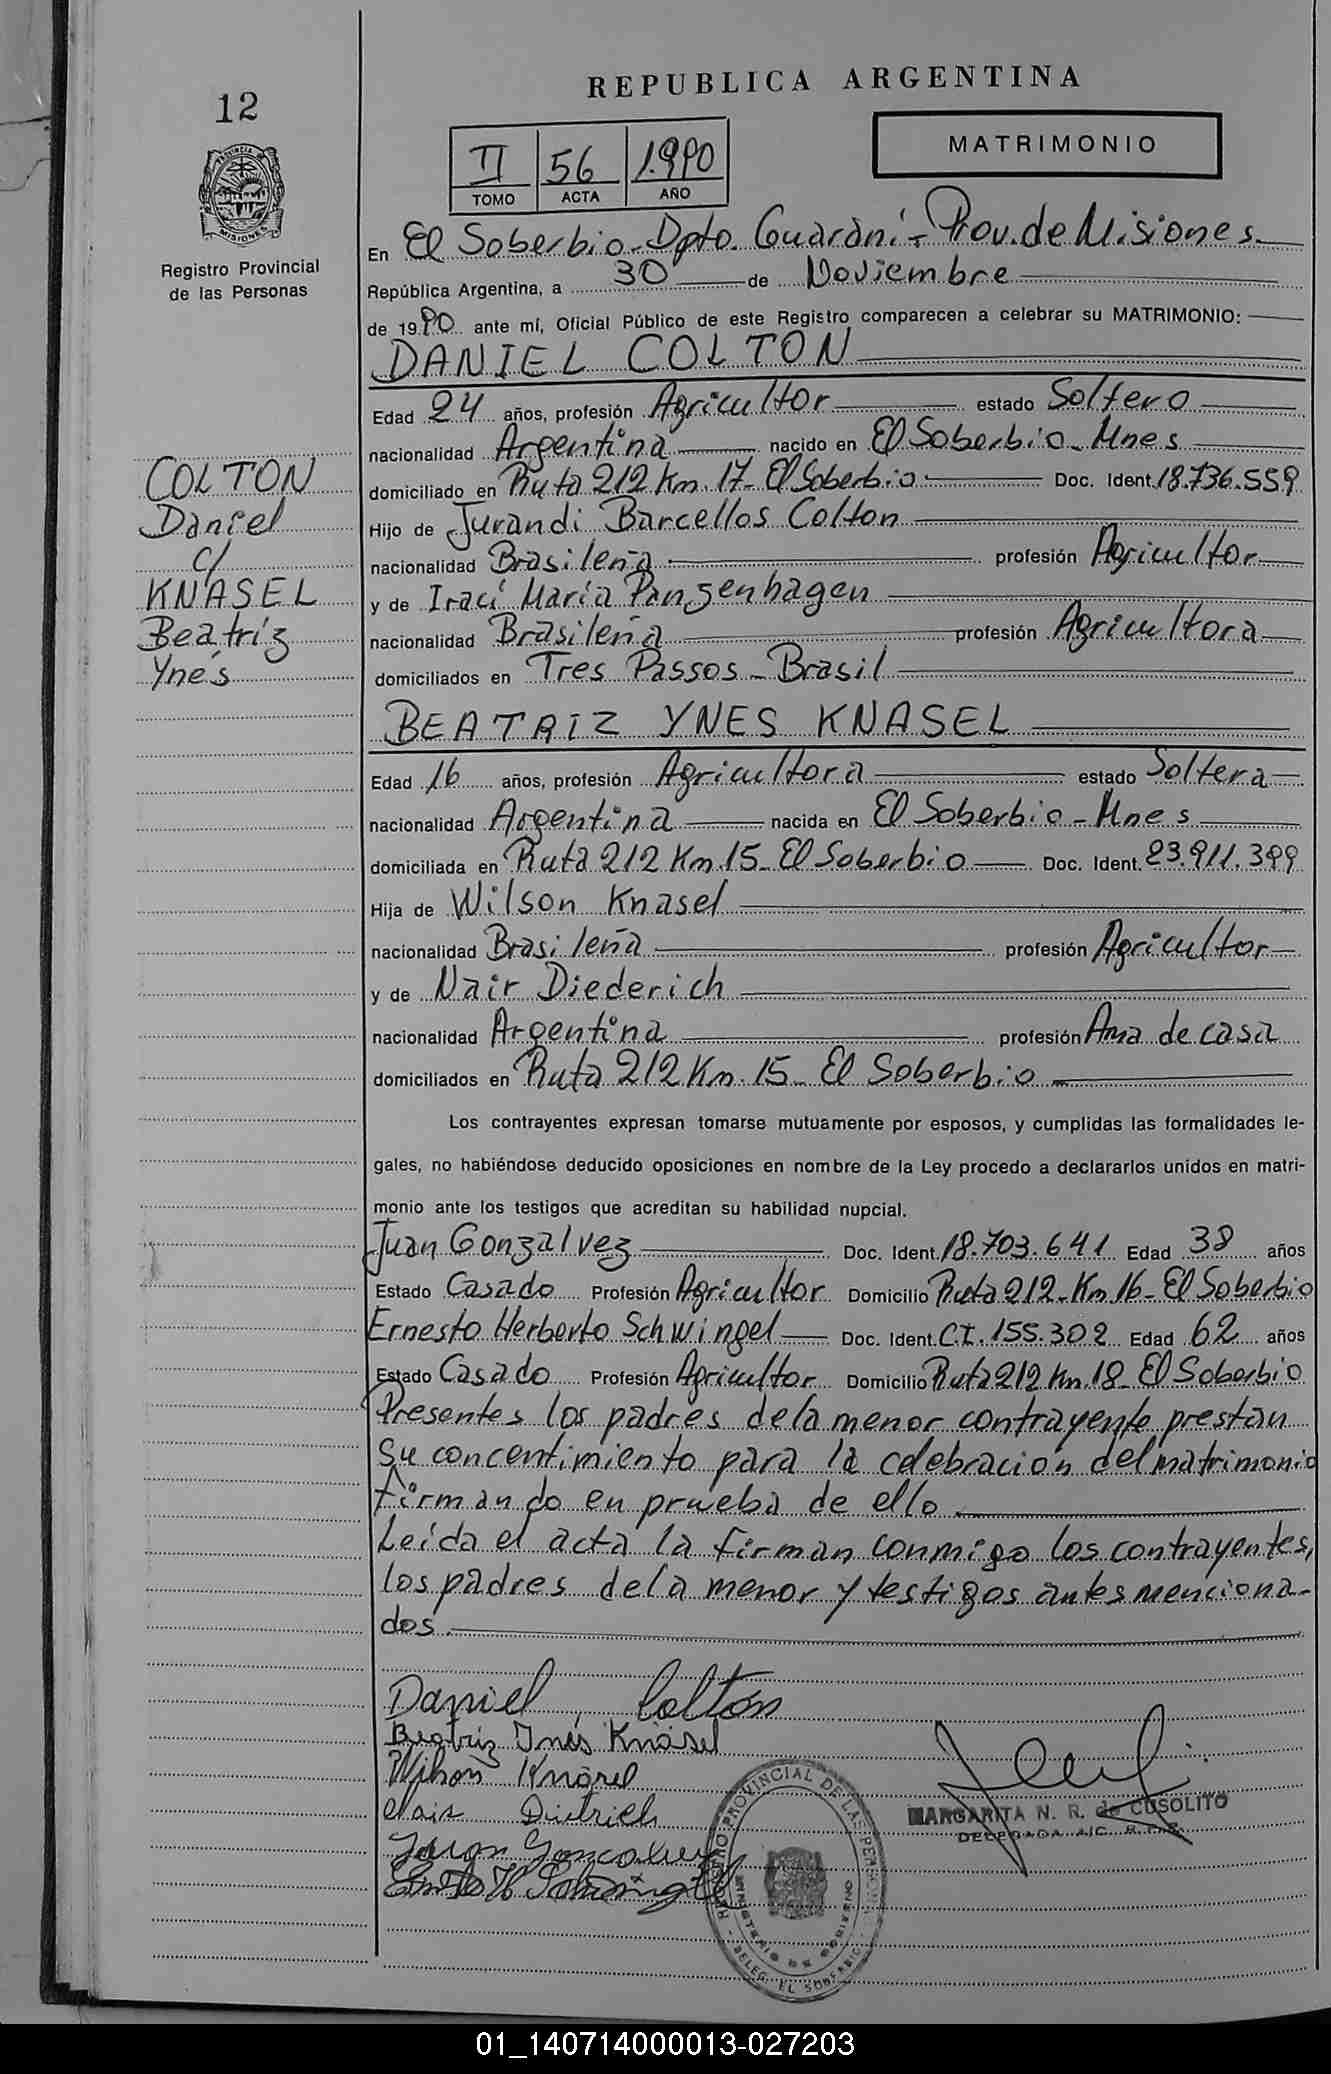 REPUBLICA ARGENTINA
12
MATRIMONIO
II 56 1.990
TOMO ACTA AÑO
PROVINCIA DE MISIONES
Registro Provincial
de las Personas
En El Soberbio - Dpto. Guaraní - Prov. de Misiones.
República Argentina, a 30 de Noviembre
de 1990 ante mí, Oficial Público de este Registro comparecen a celebrar su MATRIMONIO:
DANIEL COLTON
Edad 24 años, profesión Agricultor estado Soltero
nacionalidad Argentina nacido en El Soberbio - Mnes
domiciliado en Ruta 212 Km. 17 - El Soberbio Doc. Ident. 18.736.559
Hijo de Jurandi Barcellos Colton
nacionalidad Brasileña profesión Agricultor
y de Iraci María Pangenhagen
nacionalidad Brasileña profesión Agricultora
domiciliados en Tres Passos - Brasil
COLTON
Daniel
c/
KNASEL
Beatríz
Ynés
BEATRIZ YNES KNASEL
Edad 16 años, profesión Agricultora estado Soltera
nacionalidad Argentina nacida en El Soberbio - Mnes
domiciliada en Ruta 212 Km. 15 - El Soberbio Doc. Ident. 23.911.399
Hija de Wilson Knasel
nacionalidad Brasileña profesión Agricultor
y de Nair Diederich
nacionalidad Argentina profesión Ama de casa
domiciliados en Ruta 212 Km. 15 - El Soberbio
Los contrayentes expresan tomarse mutuamente por esposos, y cumplidas las formalidades le-
gales, no habiéndose deducido oposiciones en nombre de la Ley procedo a declararlos unidos en matri-
monio ante los testigos que acreditan su habilidad nupcial.
Juan Gonzalvez Doc. Ident. 18.703.641 Edad 38 años
Estado Casado Profesión Agricultor Domicilio Ruta 212 - Km 16 - El Soberbio
Ernesto Herberto Schwingel Doc. Ident. C.I. 155.302 Edad 62 años
Estado Casado Profesión Agricultor Domicilio Ruta 212 Km. 18 - El Soberbio
Presentes los padres de la menor contrayente, prestan
su concentimiento para la celebracion del matrimonio
firmando en prueba de ello.
Leída el acta la firman conmigo los contrayentes,
los padres de la menor y testigos antes menciona-
dos.
Daniel Colton
Beatriz Inés Knasel
Wilson Knasel
Nair Dietrich
Juan Goncalvez
MARGARITA N. R. de CUSOLITO
DELEGADA
REGISTRO PROVINCIAL DE LAS PERSONAS
MINISTERIO DE GOBIERNO
DELEG. EL SOBERBIO
01_140714000013-027203